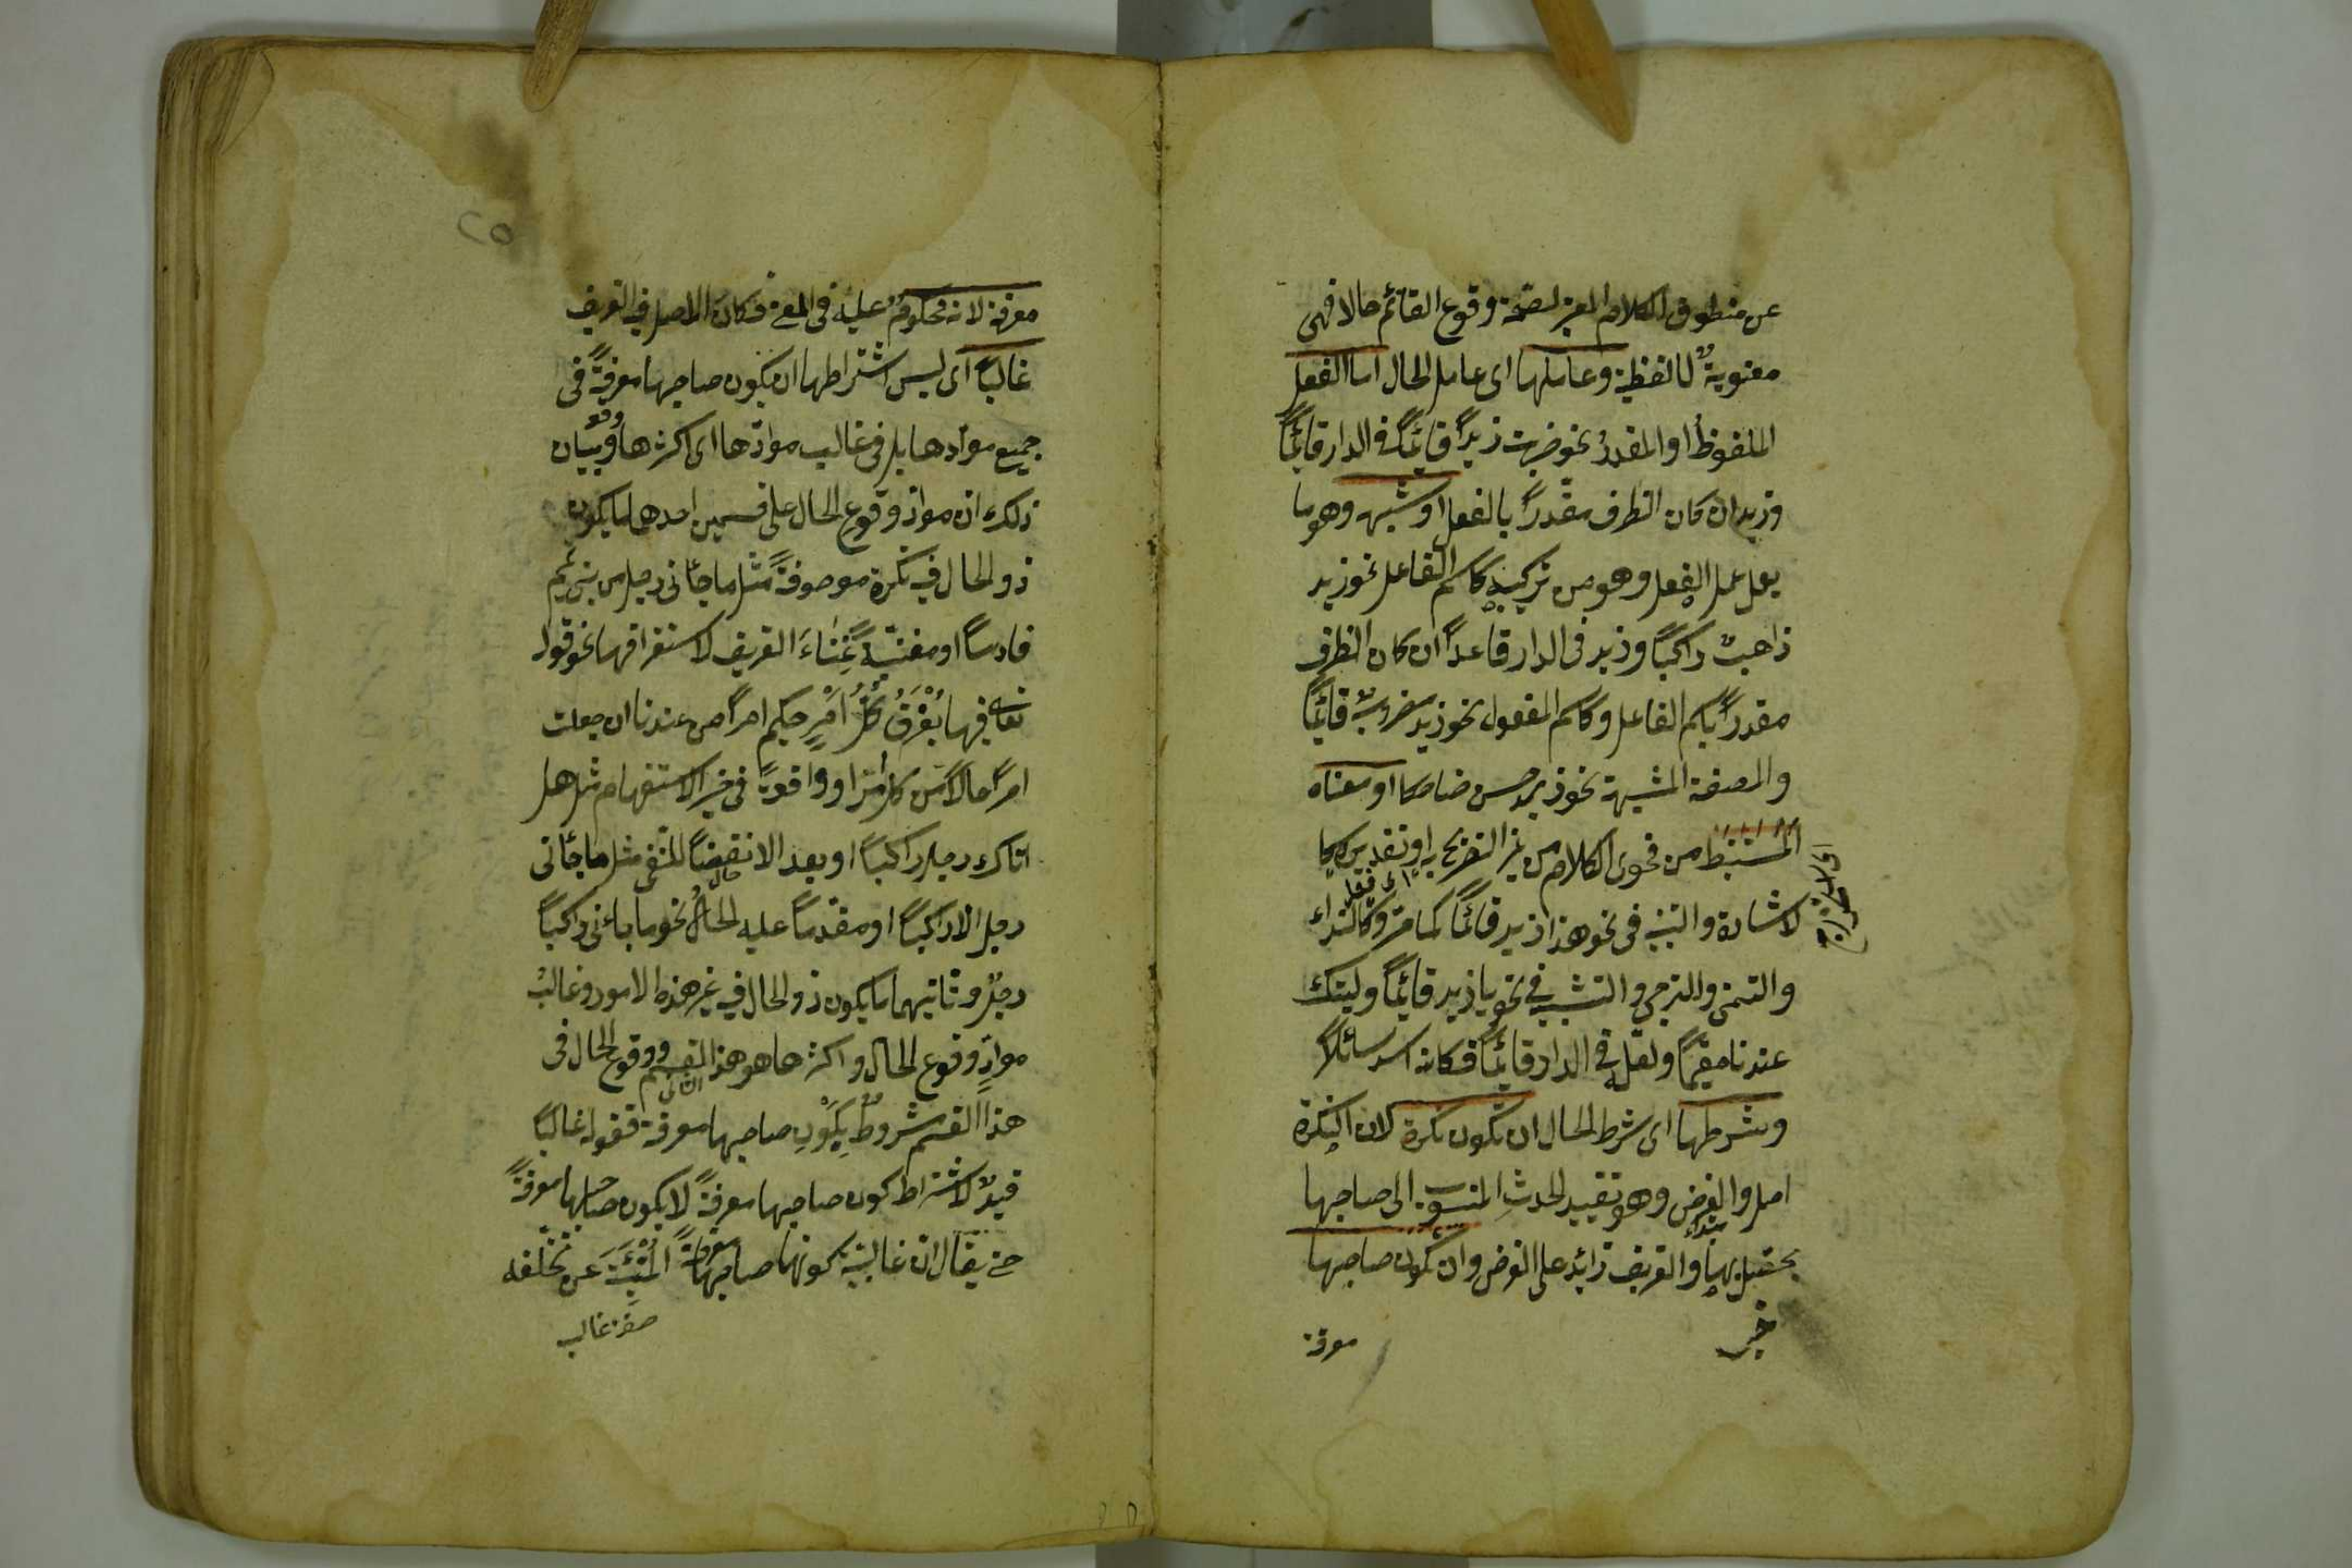 عن منطوق الكلام المعبر لصحة وقوع القائم حالا فهى
معنوية لا لفظية وعاملها اى عامل الحال اما الفعل
الملفوظ او المقدر نحو ضربت زيدا قائما فى الدار قائما
وزيد ان كان الظرف مقدرا بالفعل او شبهه وهو ما
يعمل عمل الفعل وهو من تركيبه كاسم الفاعل نحو زيد
ذاهب راكبا وزيد فى الدار قاعدا ان كان الظرف
مقدرا باسم الفاعل وكاسم المفعول نحو زيد مضروب قائما
والصفة المشبهة نحو زيد حسن ضاحكا او معناه
المستنبط من فحوى الكلام من غير التصريح به او تقديره كا
لاشارة والتنبيه فى نحو هذا زيد قائما كما مر وكالنداء
والتمنى والترجى والتشبيه فى نحو يا زيد قائما وليتك
عندنا مقيما ولعله فى الدار قائما فكانه اسد صائلا
وشرطها اى شرط الحال ان تكون نكرة لان النكرة
اصل والغرض وهو تقييد الحدث المنسوب الى صاحبها
مبتداء
يحصل بها والتعريف زائد على الغرض وان تكون صاحبها
خبر
معرفة
٢٥
معرفة لانه محكوم عليه فى المعنى فكان الاصل فيه التعريف
غالبا اى ليس اشتراطها ان يكون صاحبها معرفة فى
جميع موادها بل فى غالب موادها اى اكثرها وبيان
ذلك ان مواد وقوع الحال على قسمين احدهما ما يكون
ذو الحال فيه نكرة موصوفة مثل ما جائنى رجل من بنى تميم
فارسا او مغنية غناء التعريف لاستغراقها نحو قوله
تعالى فيها يفرق كل امر حكيم امرا من عندنا ان جعلت
امرا حالا من كل امر او واقعة فى حيز الاستفهام مثل هل
اتاك رجل راكبا او بعد الا نقضا للنفى مثل ما جائنى
رجل الا راكبا او مقدما عليه الحال نحو ما جائنى راكبا
رجل وثانيهما ما يكون ذو الحال فيه غير هذه الامور وغالب
مواد وقوع الحال واكثرها هو هذا القسم ووقوع الحال فى
الثانى
هذا القسم مشروط بكون صاحبها معرفة فقوله غالبا
قيد لاشتراط كون صاحبها معرفة لا بكون صاحبها معرفة
حتى يقال ان غالبية كونها صاحبها معرفة المنبئة عن تخلفه
صفة غالب